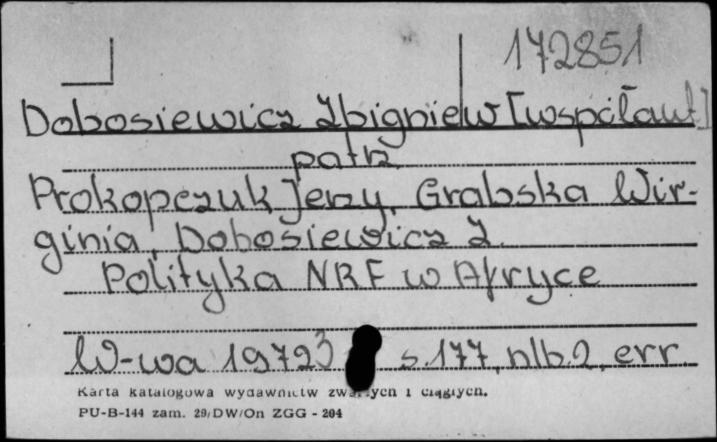 172851
Dobosiewicz Zbigniew [współaut.]
patrz
Prokopczuk Jerzy, Grabska Wir-
ginia, Dobosiewicz Z.
Polityka NRF w Afryce
W-wa 1972 s. 177, nlb. 2, err.
Karta katalogowa wydawnictw zwartych i ciągłych.
PU-B-144 zam. 29/DW/On ZGG - 204